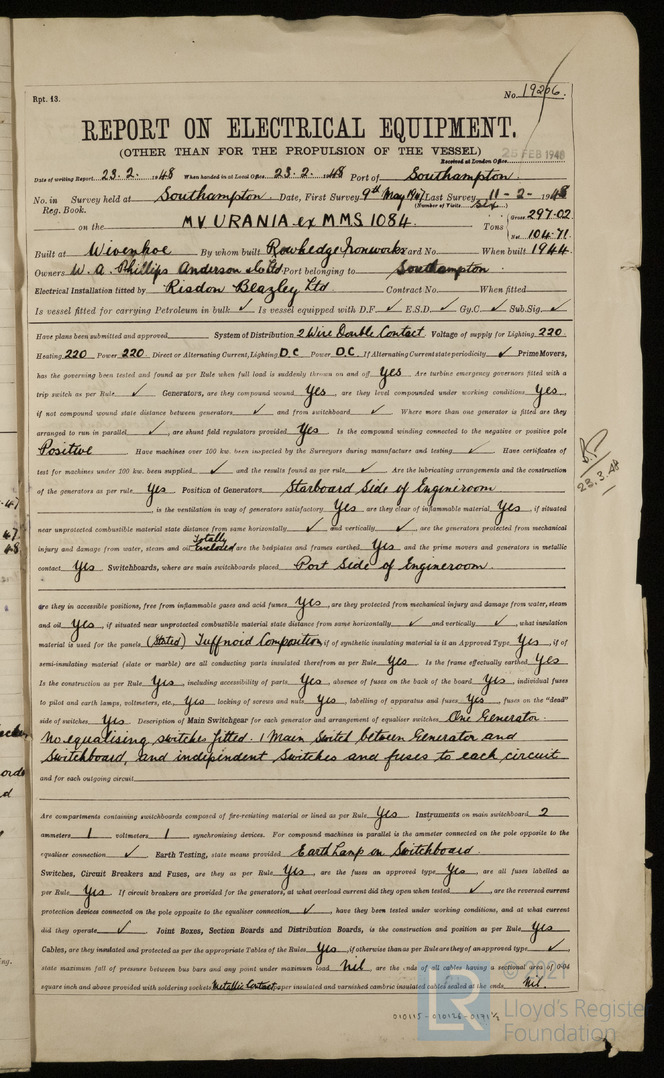 Rpt. 13.
No. 19206.
REPORT ON ELECTRICAL EQUIPMENT.
(OTHER THAN FOR THE PROPULSION OF THE VESSEL)
Received at London Office 25 FEB 1948
Date of writing Report 23.2.1948 When handed in at Local Office 23.2.1948 Port of Southampton.
No. in Survey held at Southampton. Date, First Survey 9th May 1947 Last Survey 11-2-1948
Reg. Book. (Number of Visits Six)
on the M.V. URANIA ex MMS 1084. Tons Gross 297.02
Net 104.71
Built at Wivenhoe By whom built Rowhedge Ironworks Yard No. When built 1944
Owners W. A. Phillips Anderson & Co Ltd Port belonging to Southampton
Electrical Installation fitted by Risdon Beazley Ltd Contract No. When fitted
Is vessel fitted for carrying Petroleum in bulk ✓ Is vessel equipped with D.F. ✓ E.S.D. ✓ Gy.C ✓ Sub.Sig. ✓
Have plans been submitted and approved System of Distribution 2 Wire Double Contact Voltage of supply for Lighting 220
Heating 220 Power 220 Direct or Alternating Current, Lighting D.C Power D.C If Alternating Current state periodicity ✓ Prime Movers,
has the governing been tested and found as per Rule when full load is suddenly thrown on and off Yes Are turbine emergency governors fitted with a
trip switch as per Rule ✓ Generators, are they compound wound Yes, are they level compounded under working conditions Yes,
if not compound wound state distance between generators ✓ and from switchboard ✓ Where more than one generator is fitted are they
arranged to run in parallel ✓, are shunt field regulators provided Yes Is the compound winding connected to the negative or positive pole
Positive Have machines over 100 kw. been inspected by the Surveyors during manufacture and testing ✓ Have certificates of
test for machines under 100 kw. been supplied ✓ and the results found as per rule ✓ Are the lubricating arrangements and the construction
of the generators as per rule Yes Position of Generators Starboard Side of Engineroom
is the ventilation in way of generators satisfactory Yes are they clear of inflammable material Yes, if situated
near unprotected combustible material state distance from same horizontally ✓ and vertically ✓, are the generators protected from mechanical
injury and damage from water, steam and oil Totally Enclosed are the bedplates and frames earthed Yes and the prime movers and generators in metallic
contact Yes Switchboards, where are main switchboards placed Port Side of Engineroom.
are they in accessible positions, free from inflammable gases and acid fumes Yes, are they protected from mechanical injury and damage from water, steam
and oil Yes, if situated near unprotected combustible material state distance from same horizontally ✓ and vertically ✓, what insulation
material is used for the panels (Stated) Tuffnoid Composition if of synthetic insulating material is it an Approved Type Yes, if of
semi-insulating material (slate or marble) are all conducting parts insulated therefrom as per Rule Yes Is the frame effectually earthed Yes
Is the construction as per Rule Yes, including accessibility of parts Yes, absence of fuses on the back of the board Yes, individual fuses
to pilot and earth lamps, voltmeters, etc., Yes locking of screws and nuts Yes, labelling of apparatus and fuses Yes, fuses on the "dead"
side of switches Yes Description of Main Switchgear for each generator and arrangement of equaliser switches One Generator.
No equalising switches fitted. 1 Main Switch between Generator and
Switchboard, and independent Switches and fuses to each circuit
and for each outgoing circuit
Are compartments containing switchboards composed of fire-resisting material or lined as per Rule Yes Instruments on main switchboard 2
ammeters 1 voltmeters 1 synchronising devices. For compound machines in parallel is the ammeter connected on the pole opposite to the
equaliser connection ✓ Earth Testing, state means provided Earth Lamp on Switchboard.
Switches, Circuit Breakers and Fuses, are they as per Rule Yes, are the fuses an approved type Yes, are all fuses labelled as
per Rule Yes If circuit breakers are provided for the generators, at what overload current did they open when tested ✓, are the reversed current
protection devices connected on the pole opposite to the equaliser connection ✓, have they been tested under working conditions, and at what current
did they operate ✓ Joint Boxes, Section Boards and Distribution Boards, is the construction and position as per Rule Yes
Cables, are they insulated and protected as per the appropriate Tables of the Rules Yes, if otherwise than as per Rule are they of an approved type ✓
state maximum fall of pressure between bus bars and any point under maximum load Nil are the ends of all cables having a sectional area of 0.04
square inch and above provided with soldering sockets Metallic Contact paper insulated and varnished cambric insulated cables sealed at the ends Nil.
23.3.48
010115-010126-0171 1/2
LR
© 2021
Lloyd's Register
Foundation